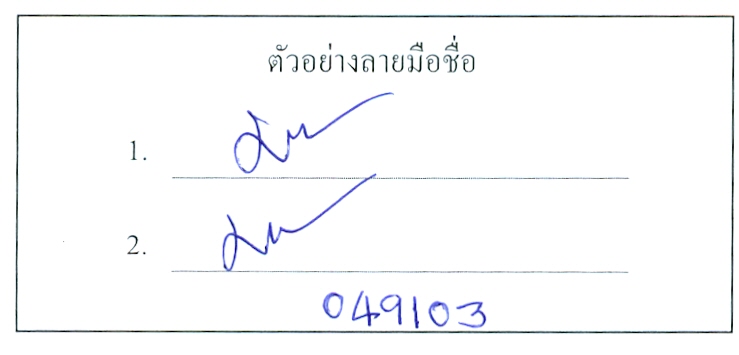 ตัวอย่างลายมือชื่อ
1.
2.
049103